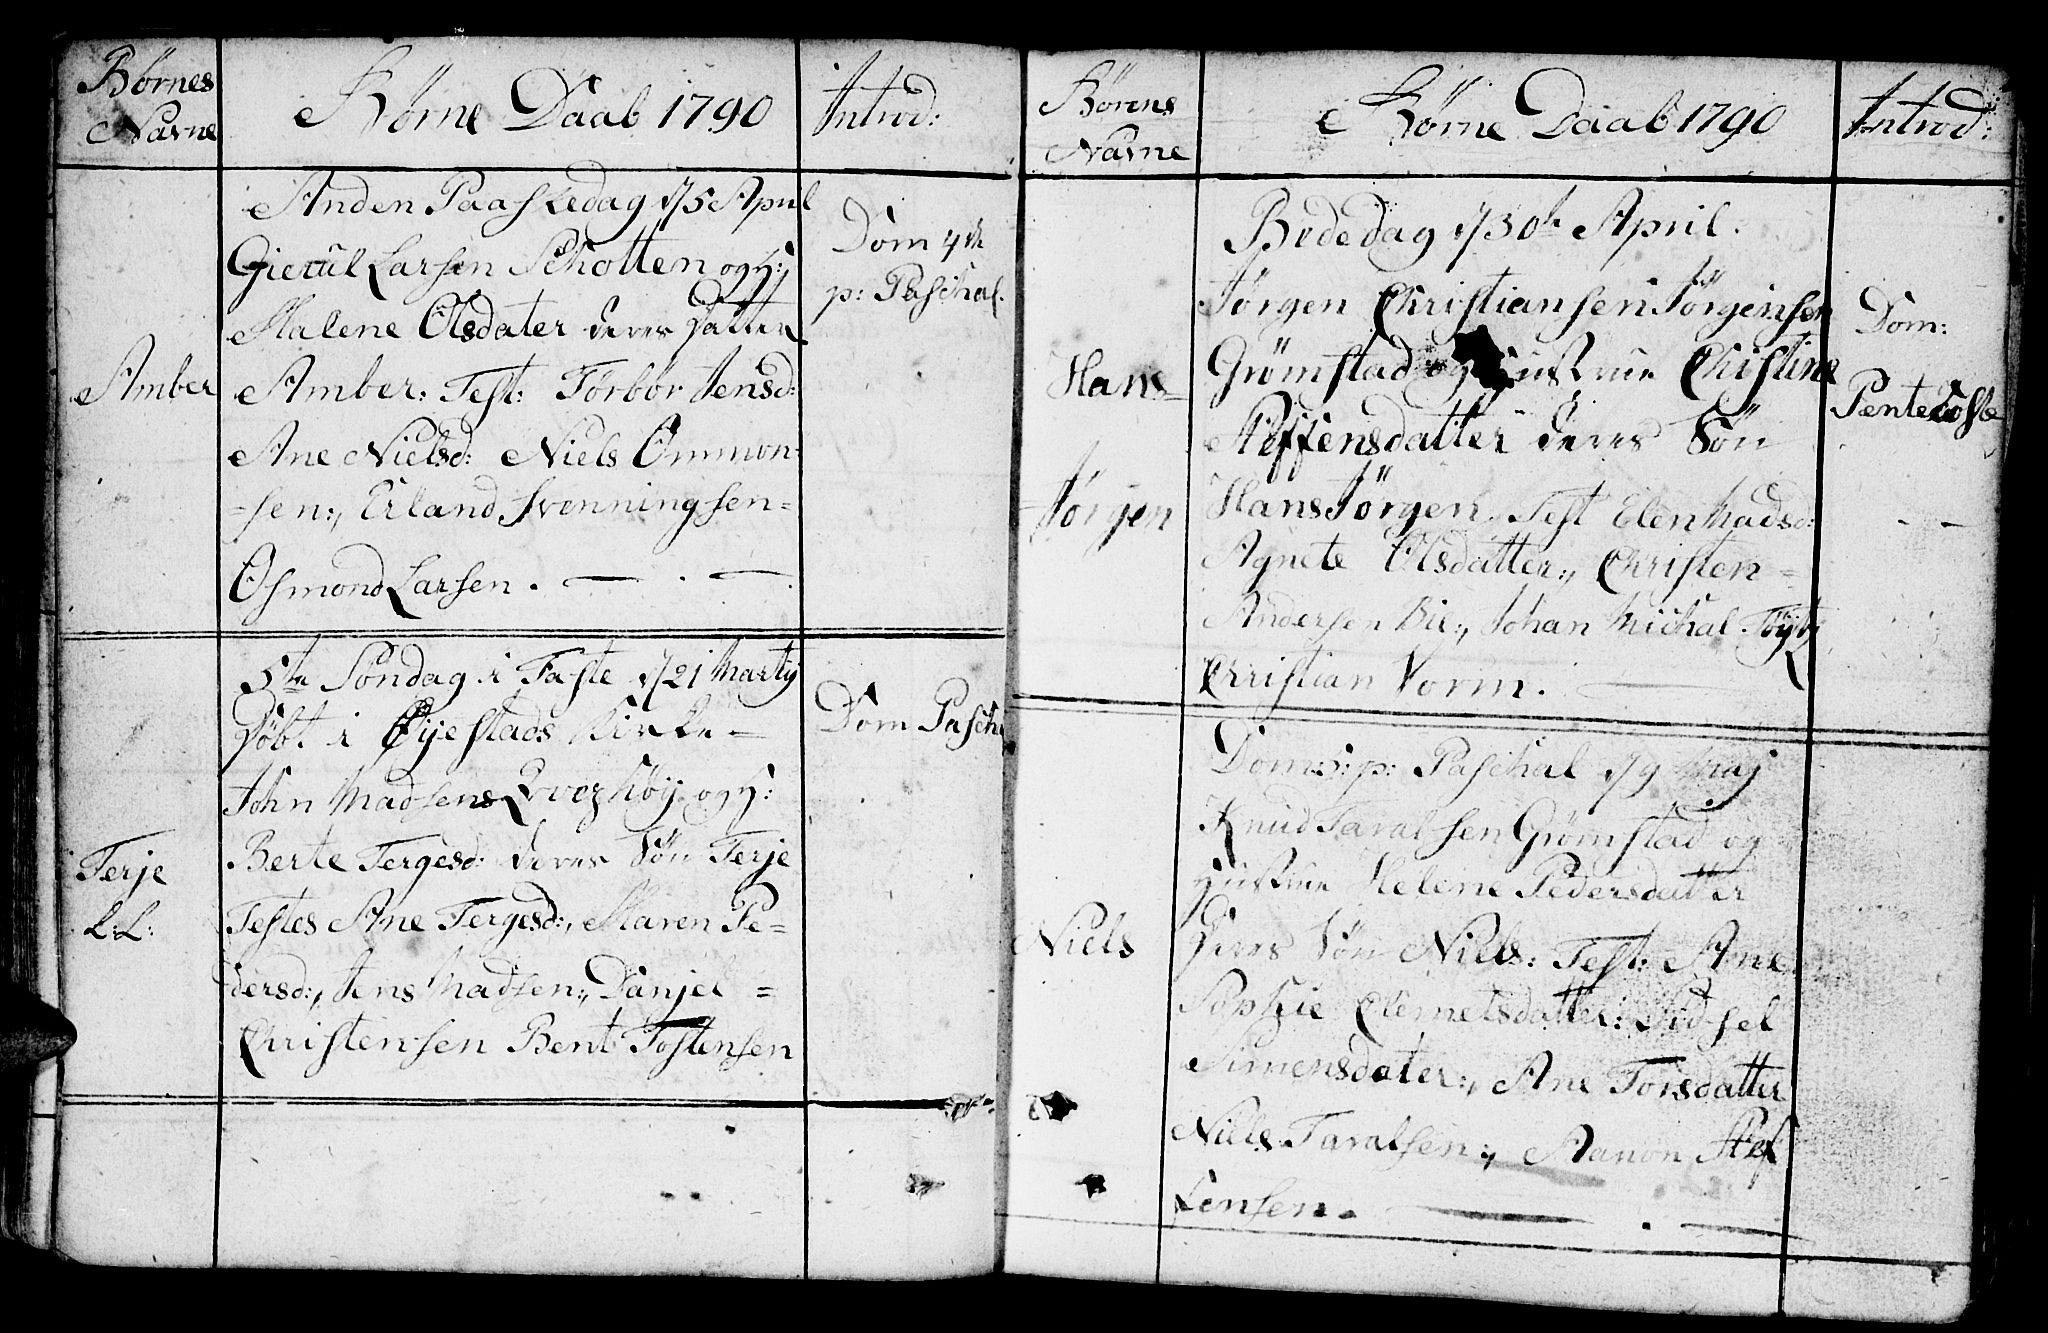 Børnes
Navne
Børne Daab 1790
Introd:
Anden Paaskedag d/5 April
Gierul Larsen Schotten og H:
Malene Olsdater deres Datter
Amber: Test: Torbør Jensd:
Ane Nielsd: Niels Ommon-
-sen:, Erland Svenningsen-
Osmond Larsen.
Amber
Dom 4de
p: Paschal.
5te Søndag i Faste d/21 Marty
Døbt i Øyestads Kirke-
John Madsens og H:
Berte Tergesd: deres Søn Terje
Testes Ane Tergesd:, Maren Pe-
dersd:, Jens Madsen:, Danjel =
Christensen Bent Tostensen
Terje
L:L:
Dom Pasch
Børens
Navne
Børne Daab 1790
Introd:
Bededag d/30te April.
Jørgen Christiansen Jørgensen
Grømstad og Hustrue Christine
Steffensdatter deres Søn
Hans Jørgen. Test Elen Madsd:
Agnete Olsdatter:, Christen-
Andersen Bie:, Johan Michal
Christian Vorm.
Hans-
-Jørgen
Dom:
Pentecoste
- -
Dom: 5: p: Paschal d/9 Maj
Knud Taralsen Grømstad og
Hustrue Helene Pedersdatter
Deres Søn Niels: Test: Ane
Sophie Clemetsdatter: Sidsel
Simensdater:, Ane Torsdatter
Niels Taralsen:, Aanon Stef
fensen.
Niels